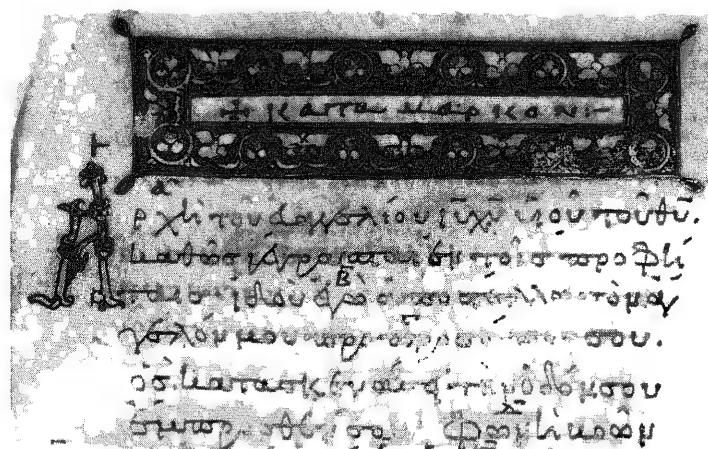 + κατα μαρκον:-
Ἀρχὴ τοῦ εὐαγγελίου ἰῡ χῡ υἱοῦ τοῦ θῡ.
καθὼς γέγραπται ἐν τοῖς προφή
ταις ἰδοὺ ἐγὼ ἀποστέλλω τὸν ἄγ
γελόν μου πρὸ προσώπου σου.
ὃς κατασκευάσει τὴν ὁδόν σου
ἔμπροσθέν σου Φωνὴ βοῶν